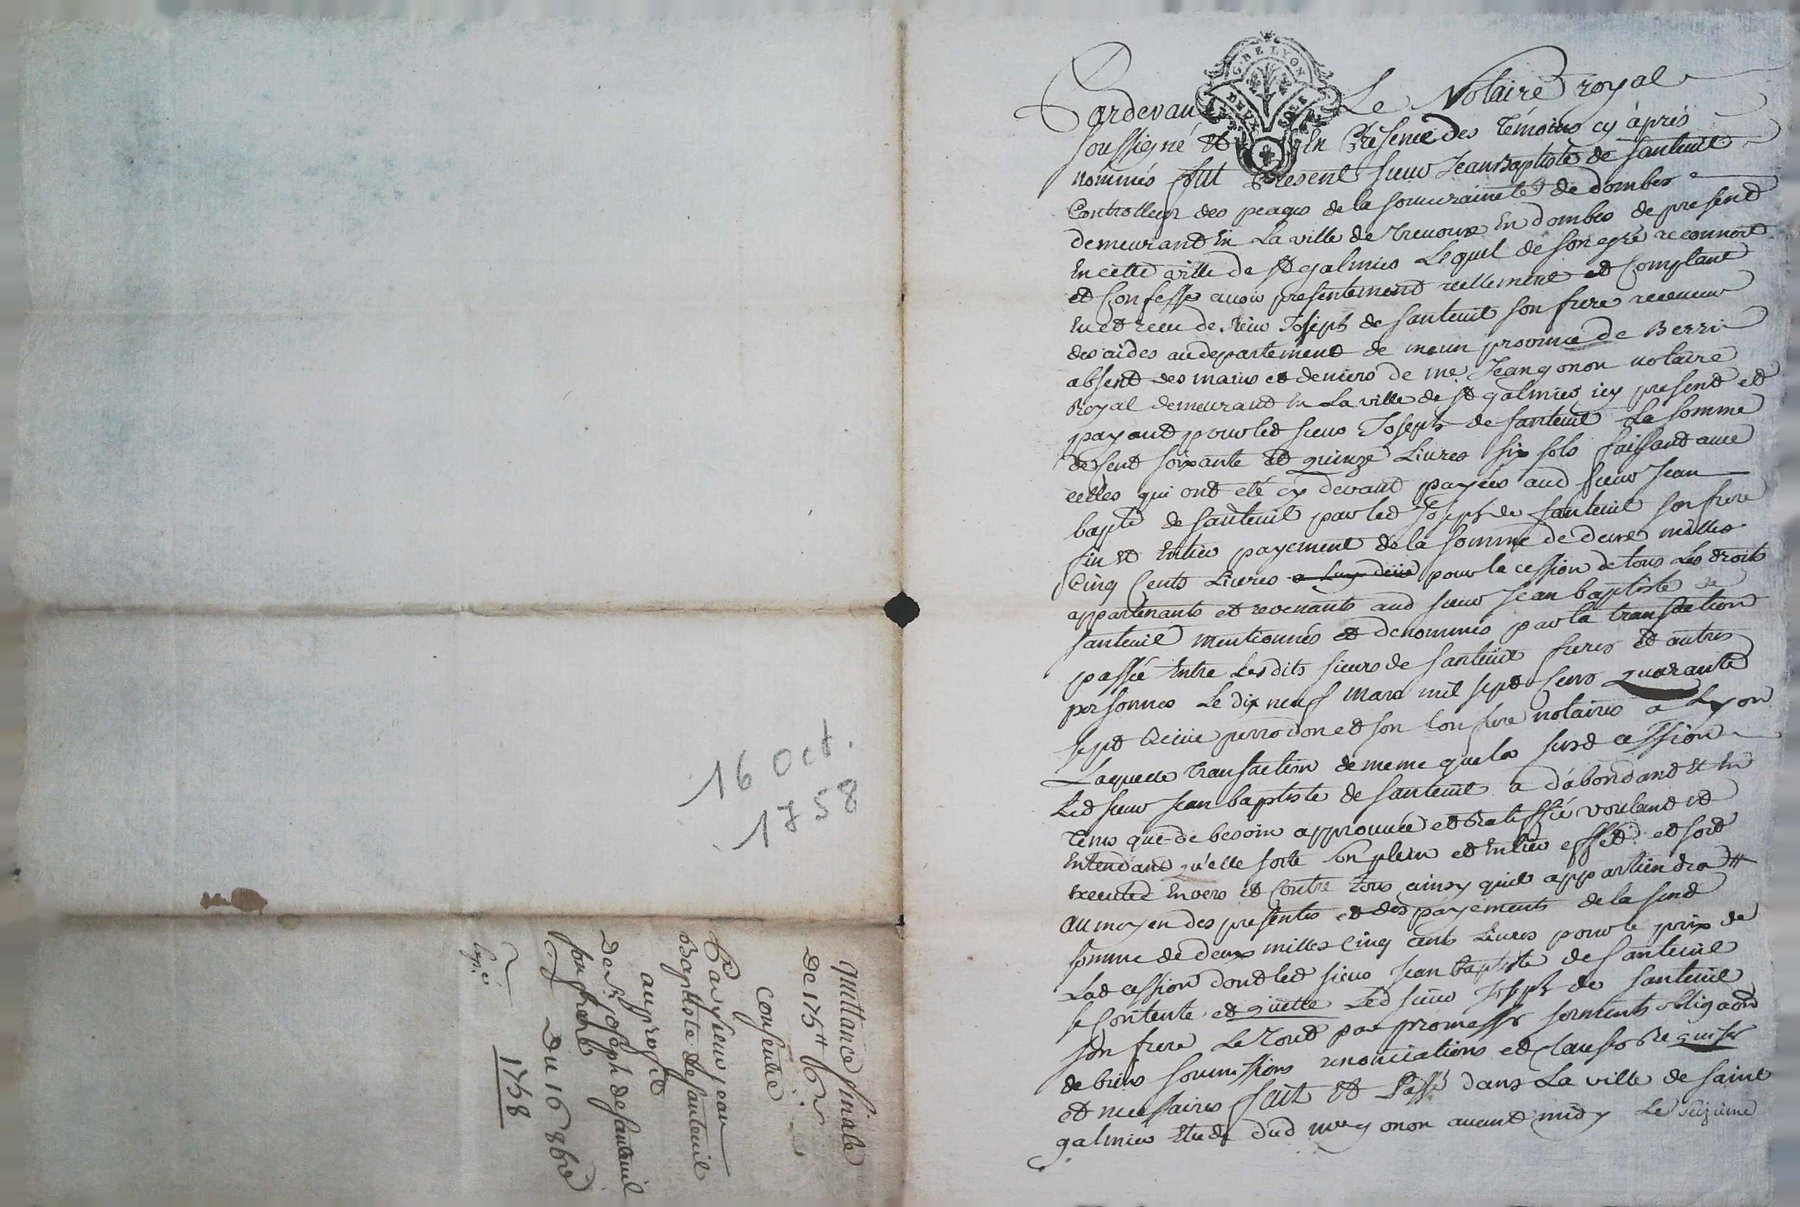 16 Oct.
1758
quittance finale
De 175lt 6s
consentie
Par sieur jean
Baptiste de Santeuil
au profit
De Sr Joseph de Santeuil
son frere
Du 16 8bre
1758
G. DE LYON
DEUX SOLS
Pardevant Le Notaire royal
soussigné et En Presence des Témoins cy àprés
nommés fut Present sieur Jean Baptiste de Santeuil
Controlleur des peages de la souveraineté de dombes
demeurant En La ville de Trevoux En dombes de present
En cette ville de st galmier Lequel de son gré reconnoit
et Confesse avoir presentement reellement et Comptant
Eu et receu de sieur Joseph de Santeuil son frere receveur
des aides au departement de meun province de Berri
absent des mains et deniers de me Jean gonon notaire
Royal demeurant En La ville de st galmier icy present et
payant pour led sieur Joseph de Santeuil La somme
de Cent soixante et quinze Livres six sols faissant avec
celles qui ont eté cy devant payées aud sieur Jean
bapte de Santeuil par led Joseph de Santeuil son frere
fin et Entier payement de la somme de deux milles
Cinq Cents Livres pour la cession de tous Les droits
appartenants et revenants aud sieur Jean baptiste de
Santeuil mentionnés et denommés par la transaction
passée Entre Lesdits sieurs de Santeuil freres et autres
personnes Le dix neuf mars mil sept Cens quarante
sept Receue perrodon et son Confrere notaires a Lyon
Laquelle Transaction de meme que la susd cession
Led sieur Jean baptiste de Santeuil a d'abondant et En
Tems que de besoin approuvée et Ratiffié voulant et
Entendant qu'elle sorte son plein et Entier effet et soit
executée Envers et Contre Tous ainsy quil appartiendra
au moyen des presentes et des payements de la susd
somme de deux milles Cinq cents Livres pour le prix de
Lad cession dont led sieur Jean baptiste de Santeuil
se Contente et quitte Led sieur Joseph de Santeuil
son frere Le Tout par promesse serments obligaõn
de biens soumissions renonciations et Clauses Requises
et necessaires fait et Passé dans La ville de saint
galmier Etude dud me gonon avant midy Le seizieme